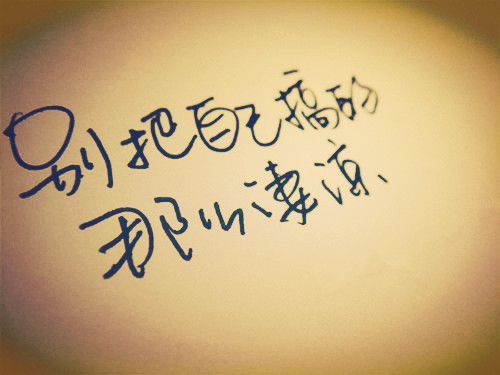 别把自己搞的
那么凄凉、